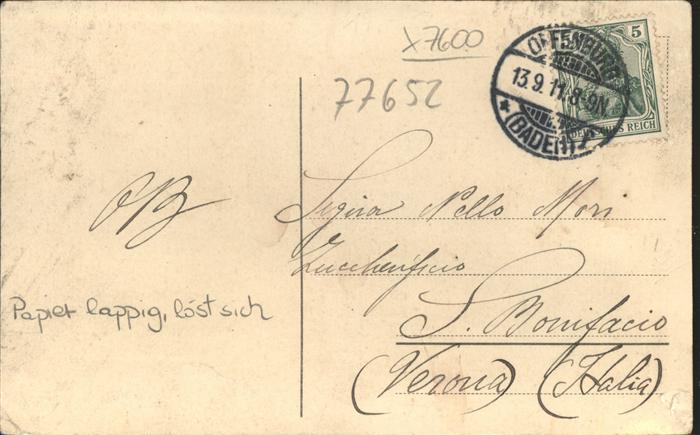 x7600
77652
5
OFFENBURG
13.9.11.8-9N
* (BADEN)
DEUTSCHES REICH
Papier lappig, löst sich
Nello Mori
Zuccherificio
S. Bonifacio
(Verona) (Italia)